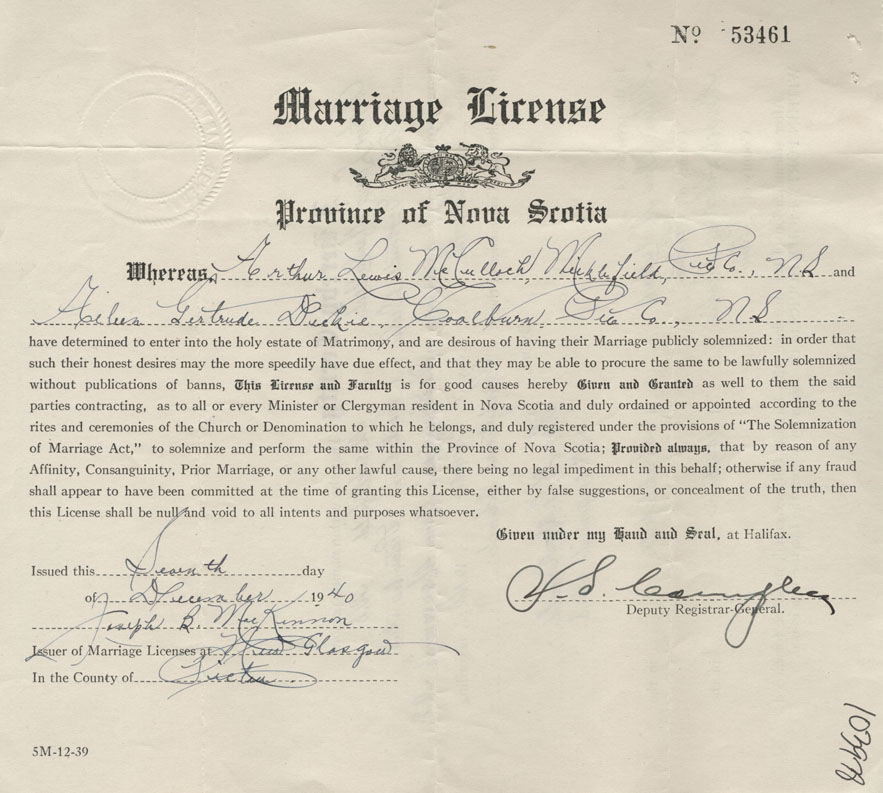 Nº 53461
Marriage License
Province of Nova Scotia
Whereas, Arthur Lewis McCulloch, Micklefield, Pic Co., N.S. and
Aileen Gertrude Dickie, Coalburn Pic Co., N.S.
have determined to enter into the holy estate of Matrimony, and are desirous of having their Marriage publicly solemnized: in order that
such their honest desires may the more speedily have due effect, and that they may be able to procure the same to be lawfully solemnized
without publications of banns, This License and Faculty is for good causes hereby Given and Granted as well to them the said
parties contracting, as to all or every Minister or Clergyman resident in Nova Scotia and duly ordained or appointed according to the
rites and ceremonies of the Church or Denomination to which he belongs, and duly registered under the provisions of "The Solemnization
of Marriage Act," to solemnize and perform the same within the Province of Nova Scotia; Provided always, that by reason of any
Affinity, Consanguinity, Prior Marriage, or any other lawful cause, there being no legal impediment in this behalf; otherwise if any fraud
shall appear to have been committed at the time of granting this License, either by false suggestions, or concealment of the truth, then
this License shall be null and void to all intents and purposes whatsoever.
Given under my Hand and Seal, at Halifax.
Issued this Seventh day
of December 1940
Joseph B. MacKinnon
Deputy Registrar-General.
Issuer of Marriage Licenses at New Glasgow
In the County of Pictou
5M-12-39